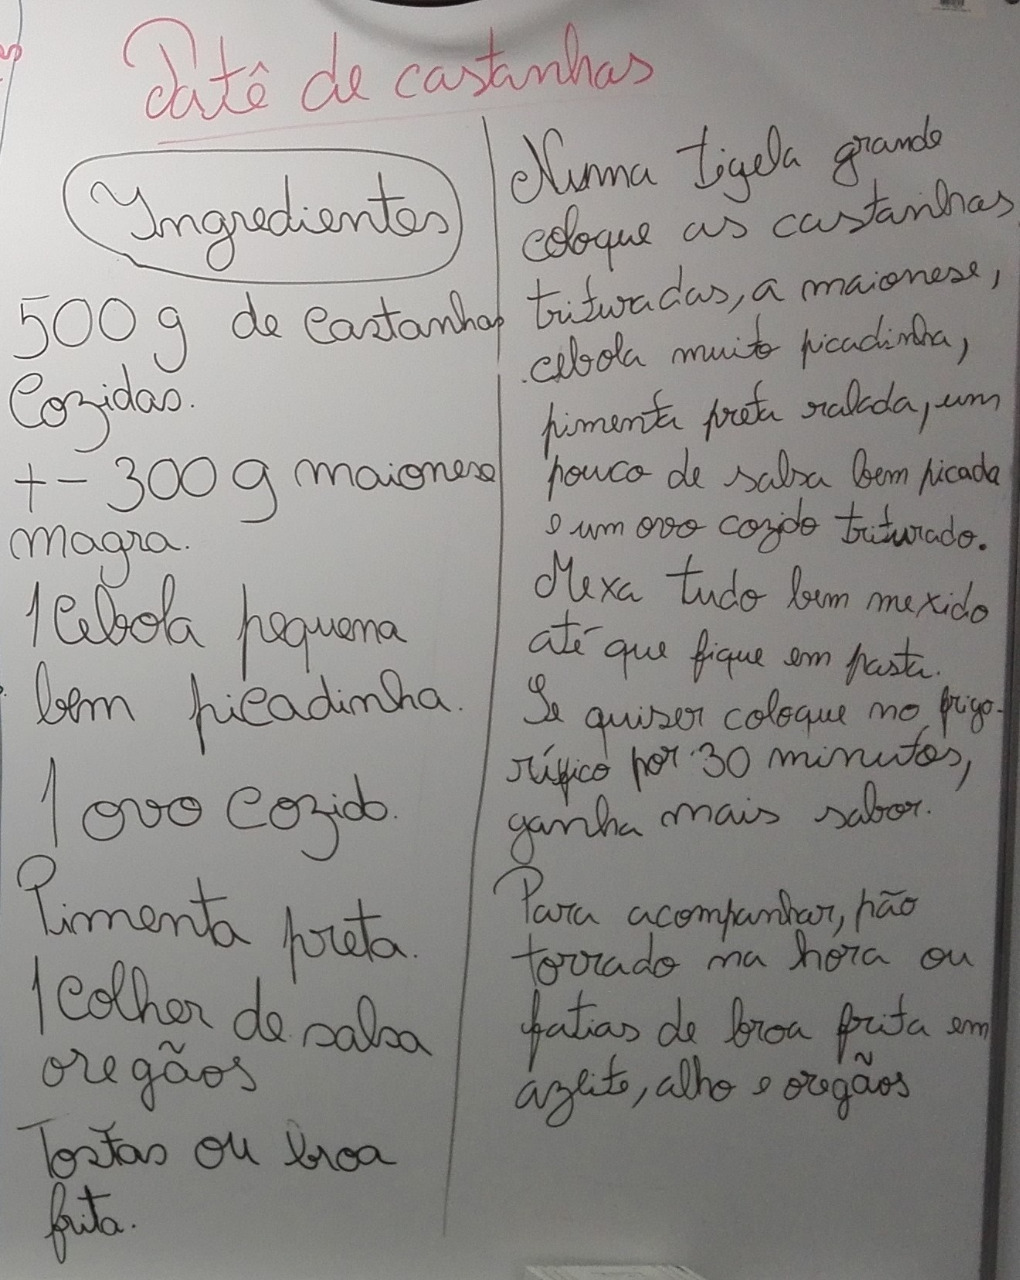 Patê de castanhas
Ingredientes
500 g de castanhas
Cozidas.
+- 300 g maionese
magra.
1 Cebola pequena
bem picadinha.
1 ovo cozido.
Pimenta preta.
1 Colher de salsa
oregãos
Tostas ou broa
frita.
Numa tigela grande
coloque as castanhas
trituradas, a maionese,
cebola muito picadinha,
pimenta preta ralada, um
pouco de salsa bem picada
e um ovo cozido triturado.
Mexa tudo bem mexido
até que fique em pasta.
Se quiser coloque no frigo-
rífico por 30 minutos,
ganha mais sabor.
Para acompanhar, pão
torrado na hora ou
fatias de broa frita em
azeite, alho e oregãos